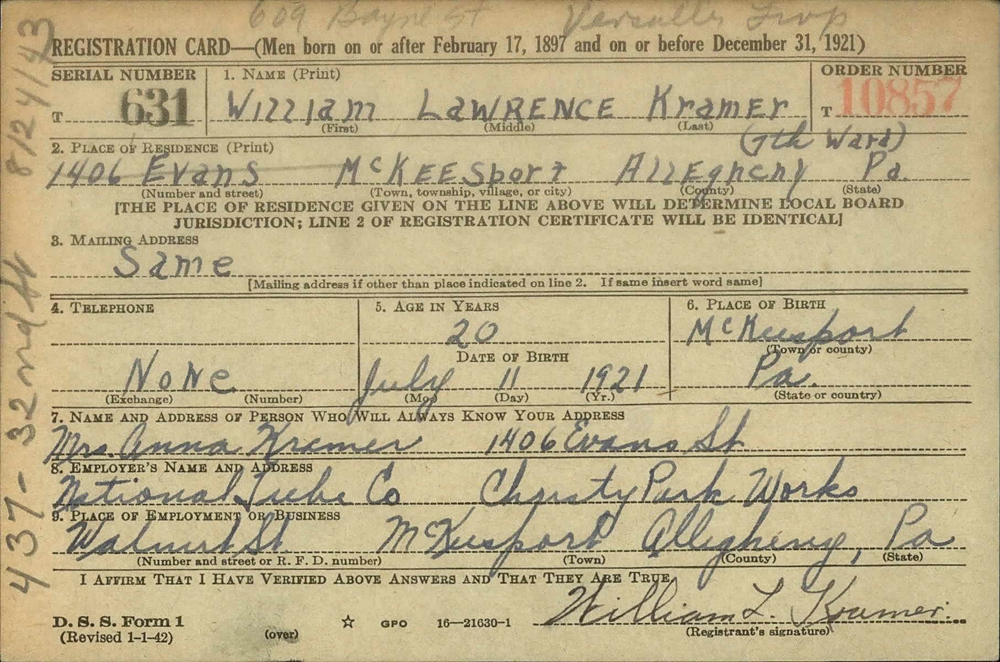 609 Bayne St Versailles Twp
REGISTRATION CARD—(Men born on or after February 17, 1897 and on or before December 31, 1921)
SERIAL NUMBER
T 631
1. NAME (Print)
William LAWRENCE Kramer
(First) (Middle) (Last)
ORDER NUMBER
T 10857
(7th Ward)
2. PLACE OF RESIDENCE (Print)
1406 Evans McKEESport AllEghEny Pa.
(Number and street) (Town, township, village, or city) (County) (State)
[THE PLACE OF RESIDENCE GIVEN ON THE LINE ABOVE WILL DETERMINE LOCAL BOARD
JURISDICTION; LINE 2 OF REGISTRATION CERTIFICATE WILL BE IDENTICAL]
3. MAILING ADDRESS
Same
[Mailing address if other than place indicated on line 2. If same insert word same]
4. TELEPHONE
None
(Exchange) (Number)
5. AGE IN YEARS
20
DATE OF BIRTH
July 11 1921
(Mo.) (Day) (Yr.)
6. PLACE OF BIRTH
McKeesport
(Town or county)
Pa.
(State or country)
7. NAME AND ADDRESS OF PERSON WHO WILL ALWAYS KNOW YOUR ADDRESS
Mrs. Anna Kramer 1406 Evans St
8. EMPLOYER'S NAME AND ADDRESS
National Tube Co Christy Park Works
9. PLACE OF EMPLOYMENT OR BUSINESS
Walnut St. McKeesport Allegheny, Pa
(Number and street or R. F. D. number) (Town) (County) (State)
I AFFIRM THAT I HAVE VERIFIED ABOVE ANSWERS AND THAT THEY ARE TRUE.
William L. Kramer.
(Registrant's signature)
D. S. S. Form 1
(Revised 1-1-42)
(over)
☆ GPO 16—21630-1
437-32nd St 8/24/43